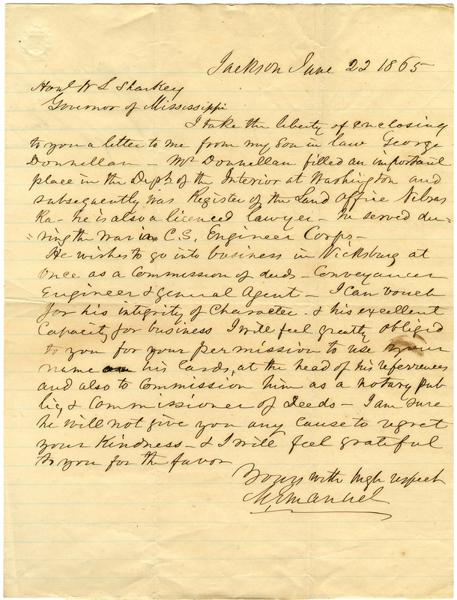 Jackson June 22 1865
Honl W L Sharkey
Governor of Mississippi
I take the liberty of enclosing
to you a letter to me from my Son in law George
Donnellan – Mr Donnellan filled an important
place in the Dept of the Interior at Washington and
subsequently was Register of the Land Office Nebras
ka – he is also a licenced lawyer – he served du-
=ring the war in C.S. Engineer Corps –
He wishes to go into business in Vicksburg at
once as a Commission of deeds – Conveyancer
Engineer & General Agent – I can vouch
for his integrity of Character & his excellent
Capacity for business I will feel greatly obliged
to you for your permission to use your
name on his Cards, at the head of his referrences
and also to Commission him as a notary pub
lic, & Commissioner of Deeds – I am sure
he will not give you any cause to regret
your kindness – & I will feel grateful
to you for the favor
Yours with high respect
M Emanuel